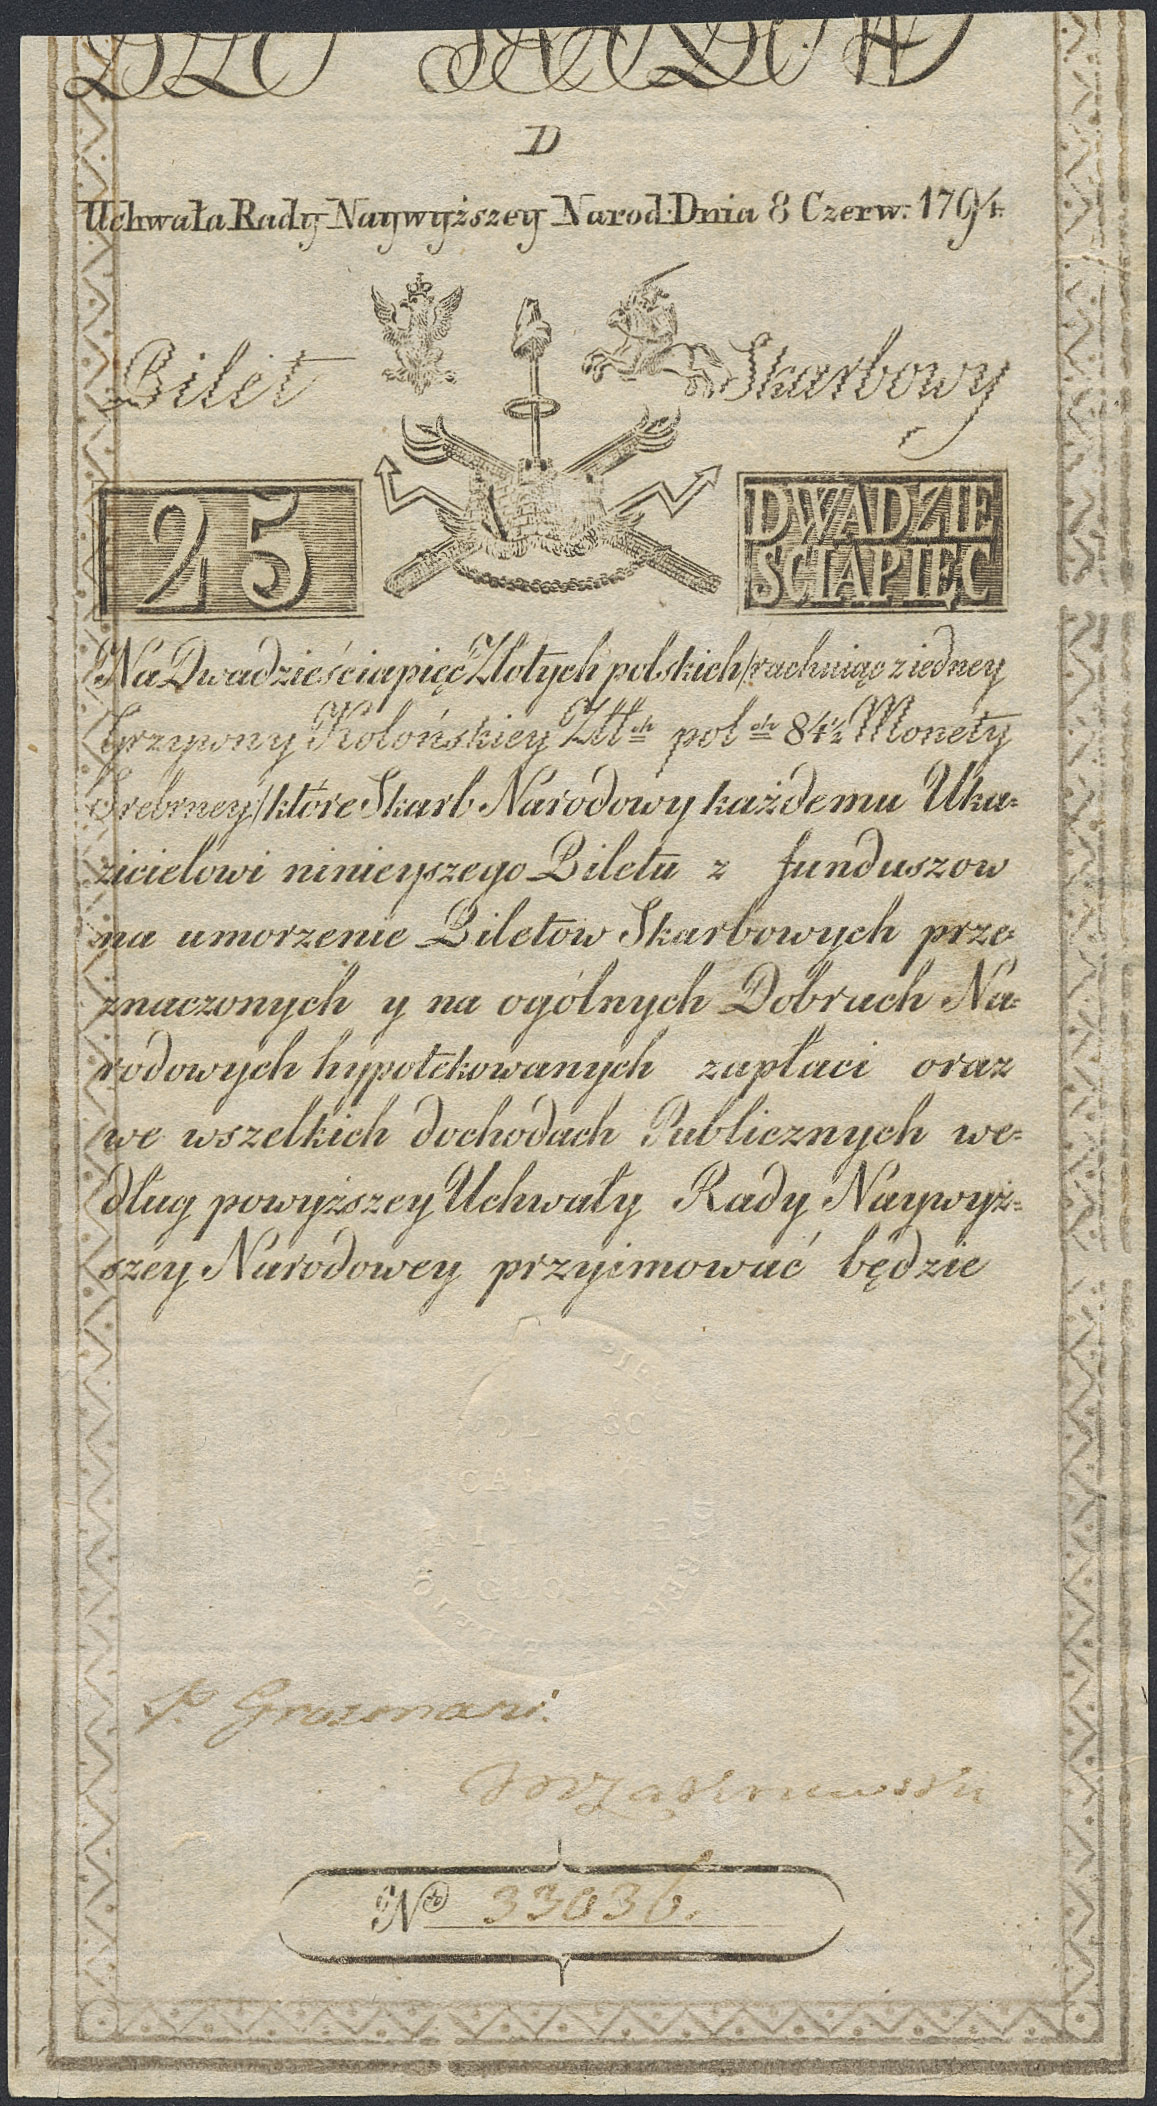 D
Uchwała Rady Naywyższey Narod: Dnia 8 Czerw: 1794.
Bilet Skarbowy
25 DWADZIE
SCIAPIĘC
Na Dwadzieściapięć Złotych polskich/rachuiąc z iedney
Grzywny Kolońskiey Złł ch pol ch 84½ Monety
Srebrney/które Skarb Narodowy każdemu Uka=
zicielowi ninieyszego Biletu z funduszow
na umorzenie Biletow Skarbowych prze=
znaczonych y na ogólnych Dobrach Na=
rodowych hypotekowanych zapłaci oraz
we wszelkich dochodach Publicznych we=
dług powyższey Uchwały Rady Naywyż=
szey Narodowey przyimować będzie
No 33036.